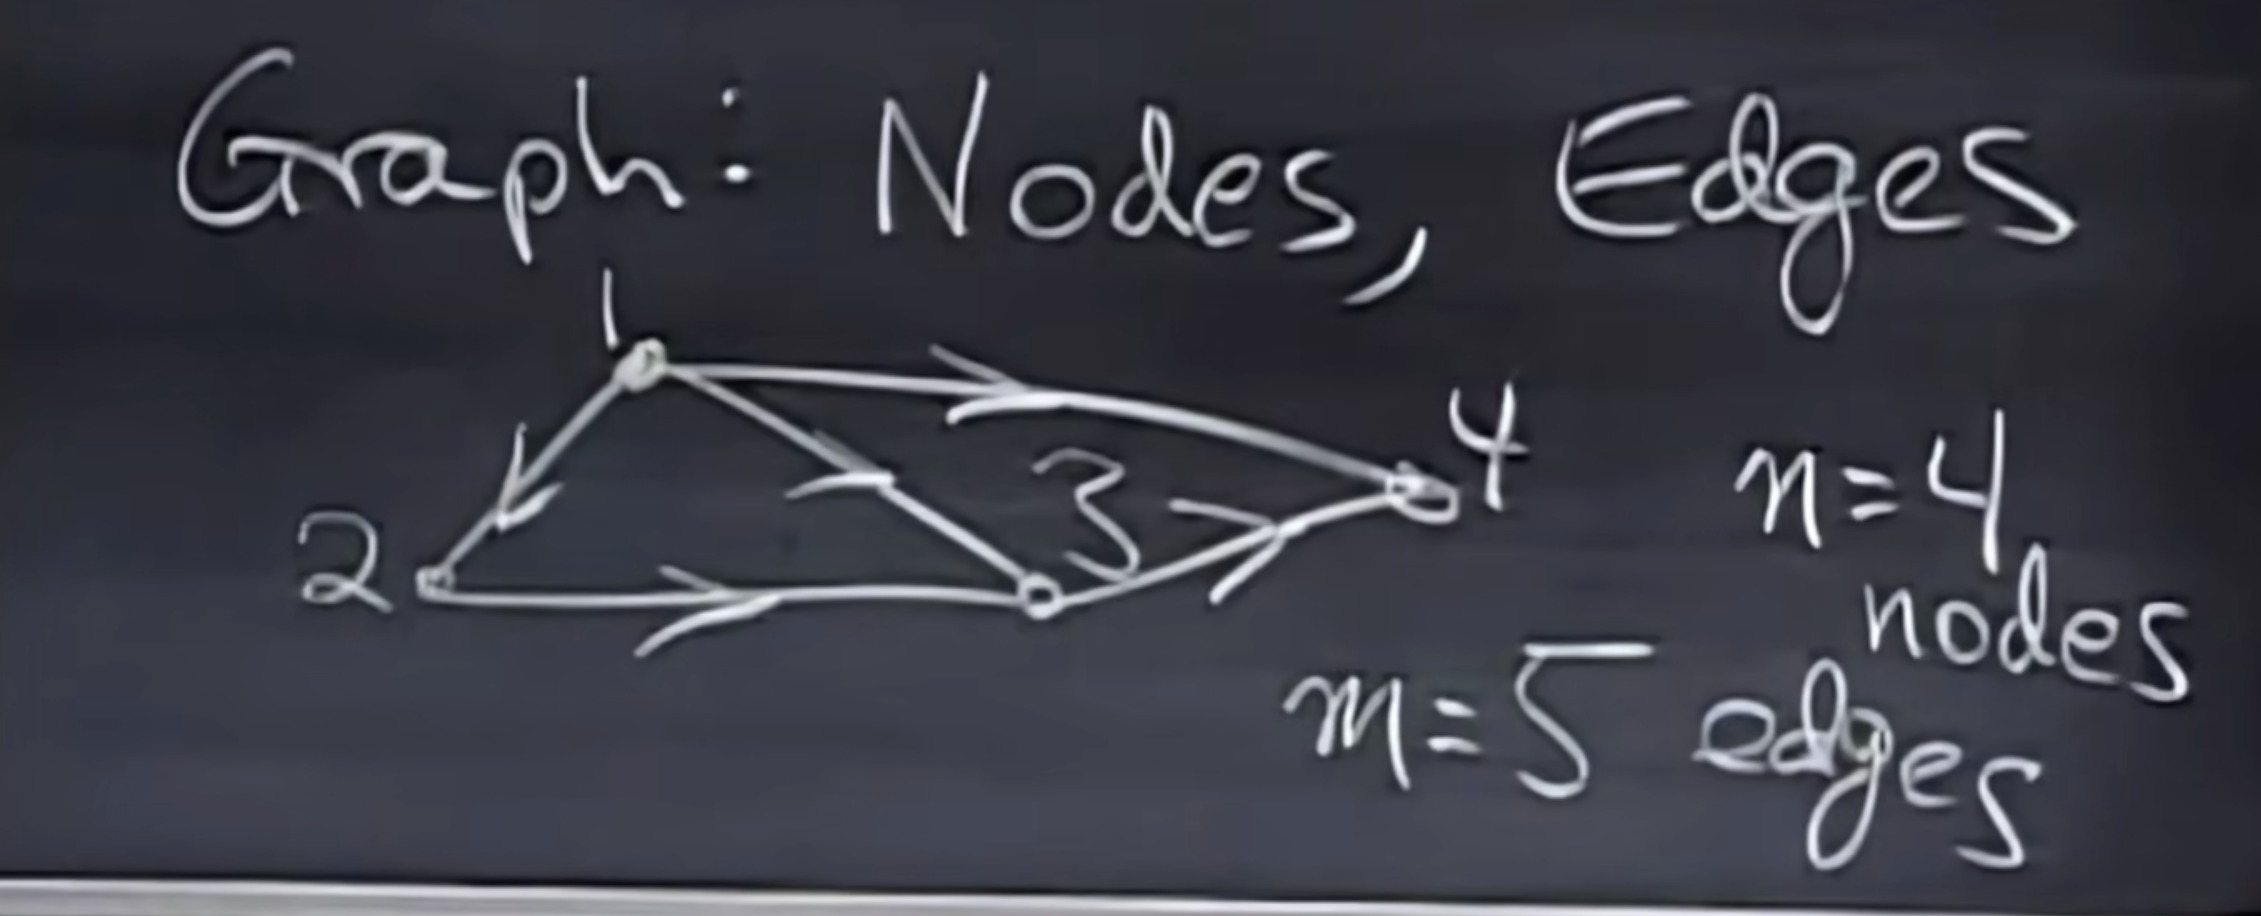 Graph: Nodes, Edges
1
4
3
2
n=4
nodes
m=5 edges